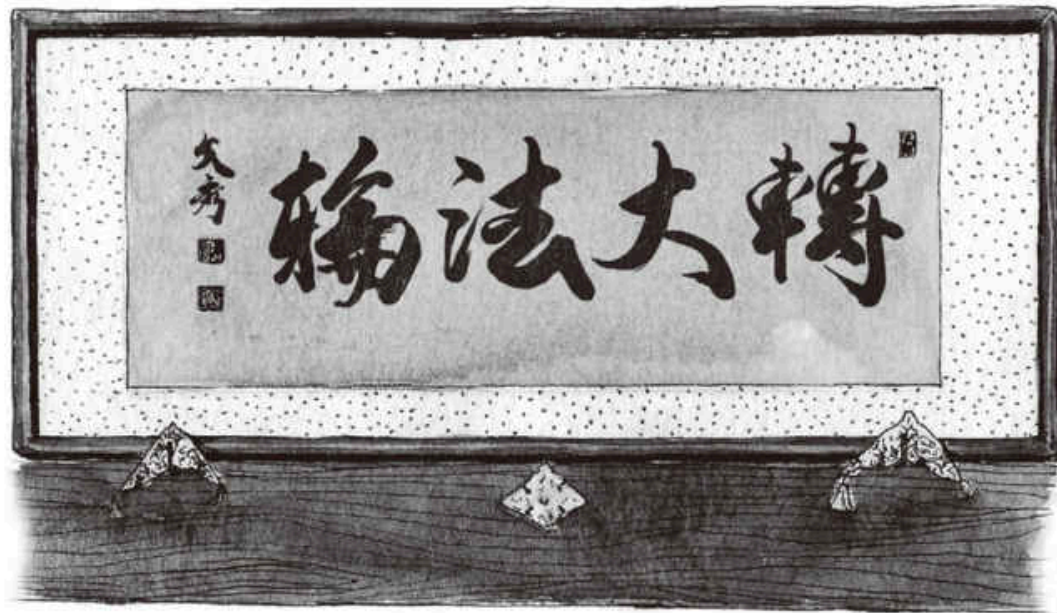 轉大法輪
秀